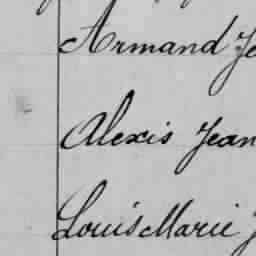 Armand Je
Alexis Jean
Louis Marie J